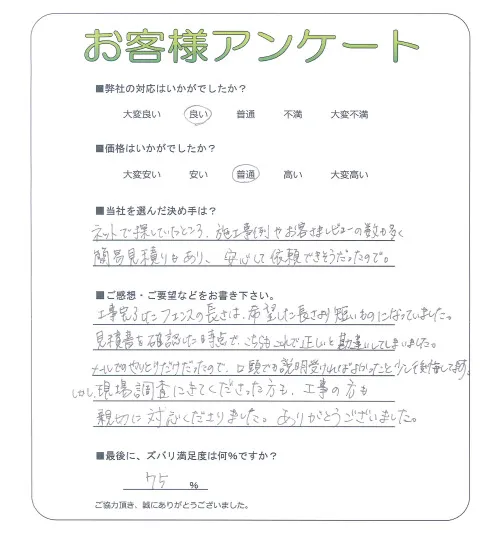 お客様アンケート
■弊社の対応はいかがでしたか？
大変良い 良い 普通 不満 大変不満
■価格はいかがでしたか？
大変安い 安い 普通 高い 大変高い
■当社を選んだ決め手は？
ネットで探していたところ、施工事例やお客さまレビューの数も多く
簡易見積りもあり、安心して依頼できそうだったので。
■ご感想・ご要望などをお書き下さい。
工事完了したフェンスの長さは、希望した長さより短いものになっていました。
見積書を確認した時点で、こちらもこれで正しいと勘違いしてしまいました。
メールでのやりとりだけだったので、口頭でも説明受ければよかったと少し後悔してます。
しかし、現場調査にきてくださった方も、工事の方も
親切に対応くださりました。ありがとうございました。
■最後に、ズバリ満足度は何%ですか？
75 %
ご協力頂き、誠にありがとうございました。